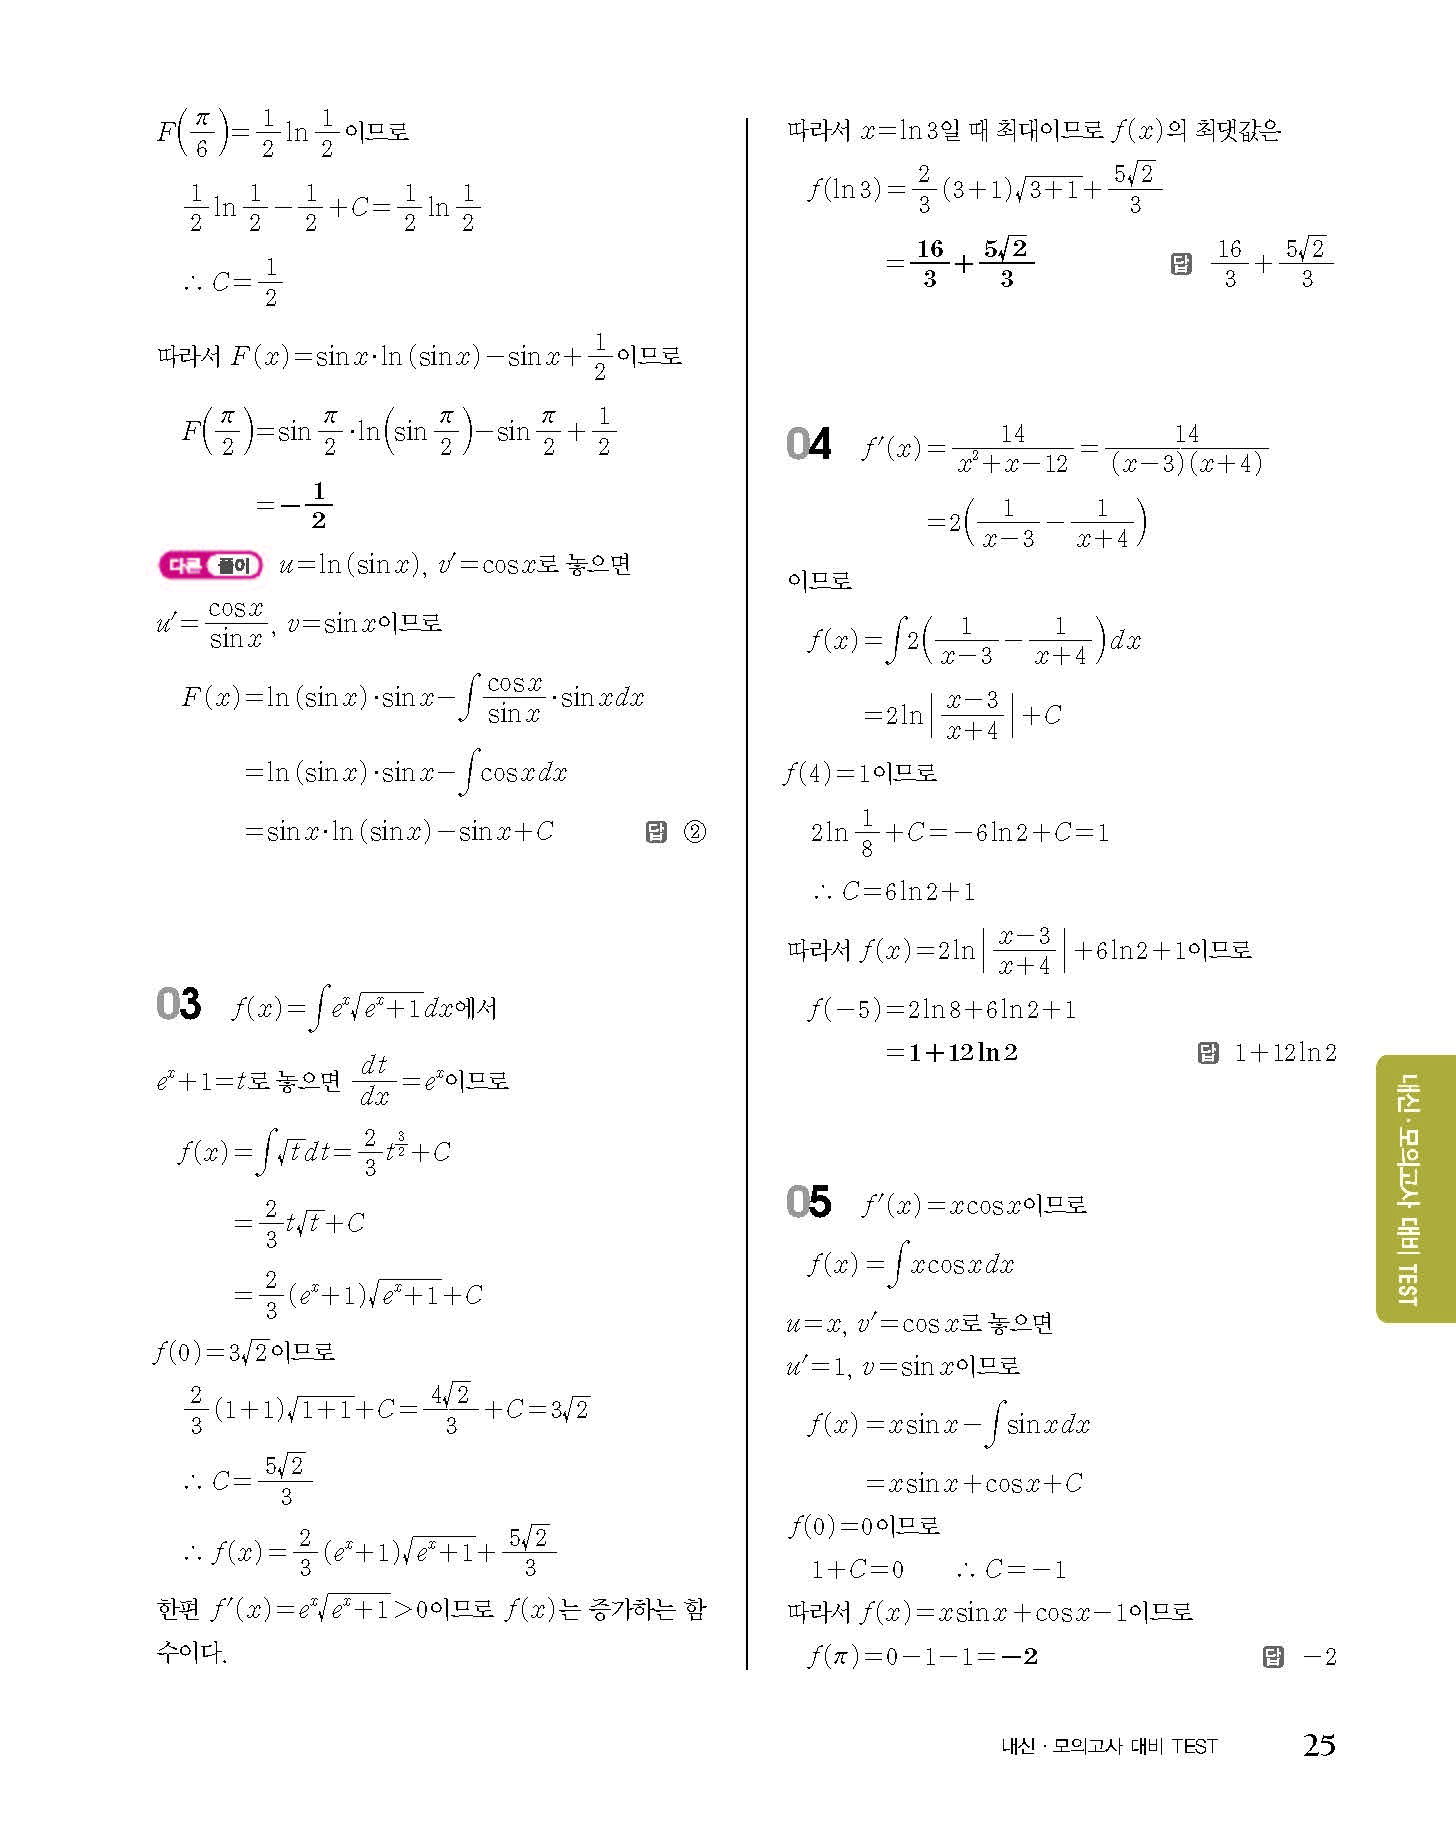 F(π/6)=1/2 ln 1/2 이므로
1/2 ln 1/2 − 1/2 +C= 1/2 ln 1/2
∴ C=1/2
따라서 F(x)=sin x·ln(sin x)−sin x+1/2 이므로
F(π/2)=sin π/2 ·ln(sin π/2)−sin π/2 + 1/2
=−1/2
다른 풀이 u=ln(sin x), v′=cos x로 놓으면
u′=cos x/sin x, v=sin x이므로
F(x)=ln(sin x)·sin x−∫cos x/sin x ·sin xdx
=ln(sin x)·sin x−∫cos xdx
=sin x·ln(sin x)−sin x+C 답 ②
03 f(x)=∫eˣ√(eˣ+1)dx에서
eˣ+1=t로 놓으면 dt/dx=eˣ이므로
f(x)=∫√t dt=2/3 t^(3/2)+C
=2/3 t√t+C
=2/3 (eˣ+1)√(eˣ+1)+C
f(0)=3√2이므로
2/3 (1+1)√(1+1)+C=4√2/3+C=3√2
∴ C=5√2/3
∴ f(x)=2/3 (eˣ+1)√(eˣ+1)+5√2/3
한편 f′(x)=eˣ√(eˣ+1)>0이므로 f(x)는 증가하는 함
수이다.
따라서 x=ln3일 때 최대이므로 f(x)의 최댓값은
f(ln3)=2/3 (3+1)√(3+1)+5√2/3
=16/3+5√2/3 답 16/3+5√2/3
04 f′(x)=14/(x²+x−12)=14/((x−3)(x+4))
=2(1/(x−3)−1/(x+4))
이므로
f(x)=∫2(1/(x−3)−1/(x+4))dx
=2ln|(x−3)/(x+4)|+C
f(4)=1이므로
2ln 1/8+C=−6ln2+C=1
∴ C=6ln2+1
따라서 f(x)=2ln|(x−3)/(x+4)|+6ln2+1이므로
f(−5)=2ln8+6ln2+1
=1+12ln2 답 1+12ln2
05 f′(x)=xcosx이므로
f(x)=∫xcosxdx
u=x, v′=cosx로 놓으면
u′=1, v=sinx이므로
f(x)=xsinx−∫sinxdx
=xsinx+cosx+C
f(0)=0이므로
1+C=0 ∴ C=−1
따라서 f(x)=xsinx+cosx−1이므로
f(π)=0−1−1=−2 답 −2
내신·모의고사 대비 TEST
내신·모의고사 대비 TEST 25